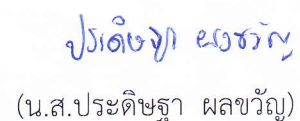 ประดิษฐา ผลขวัญ
(น.ส.ประดิษฐา ผลขวัญ)